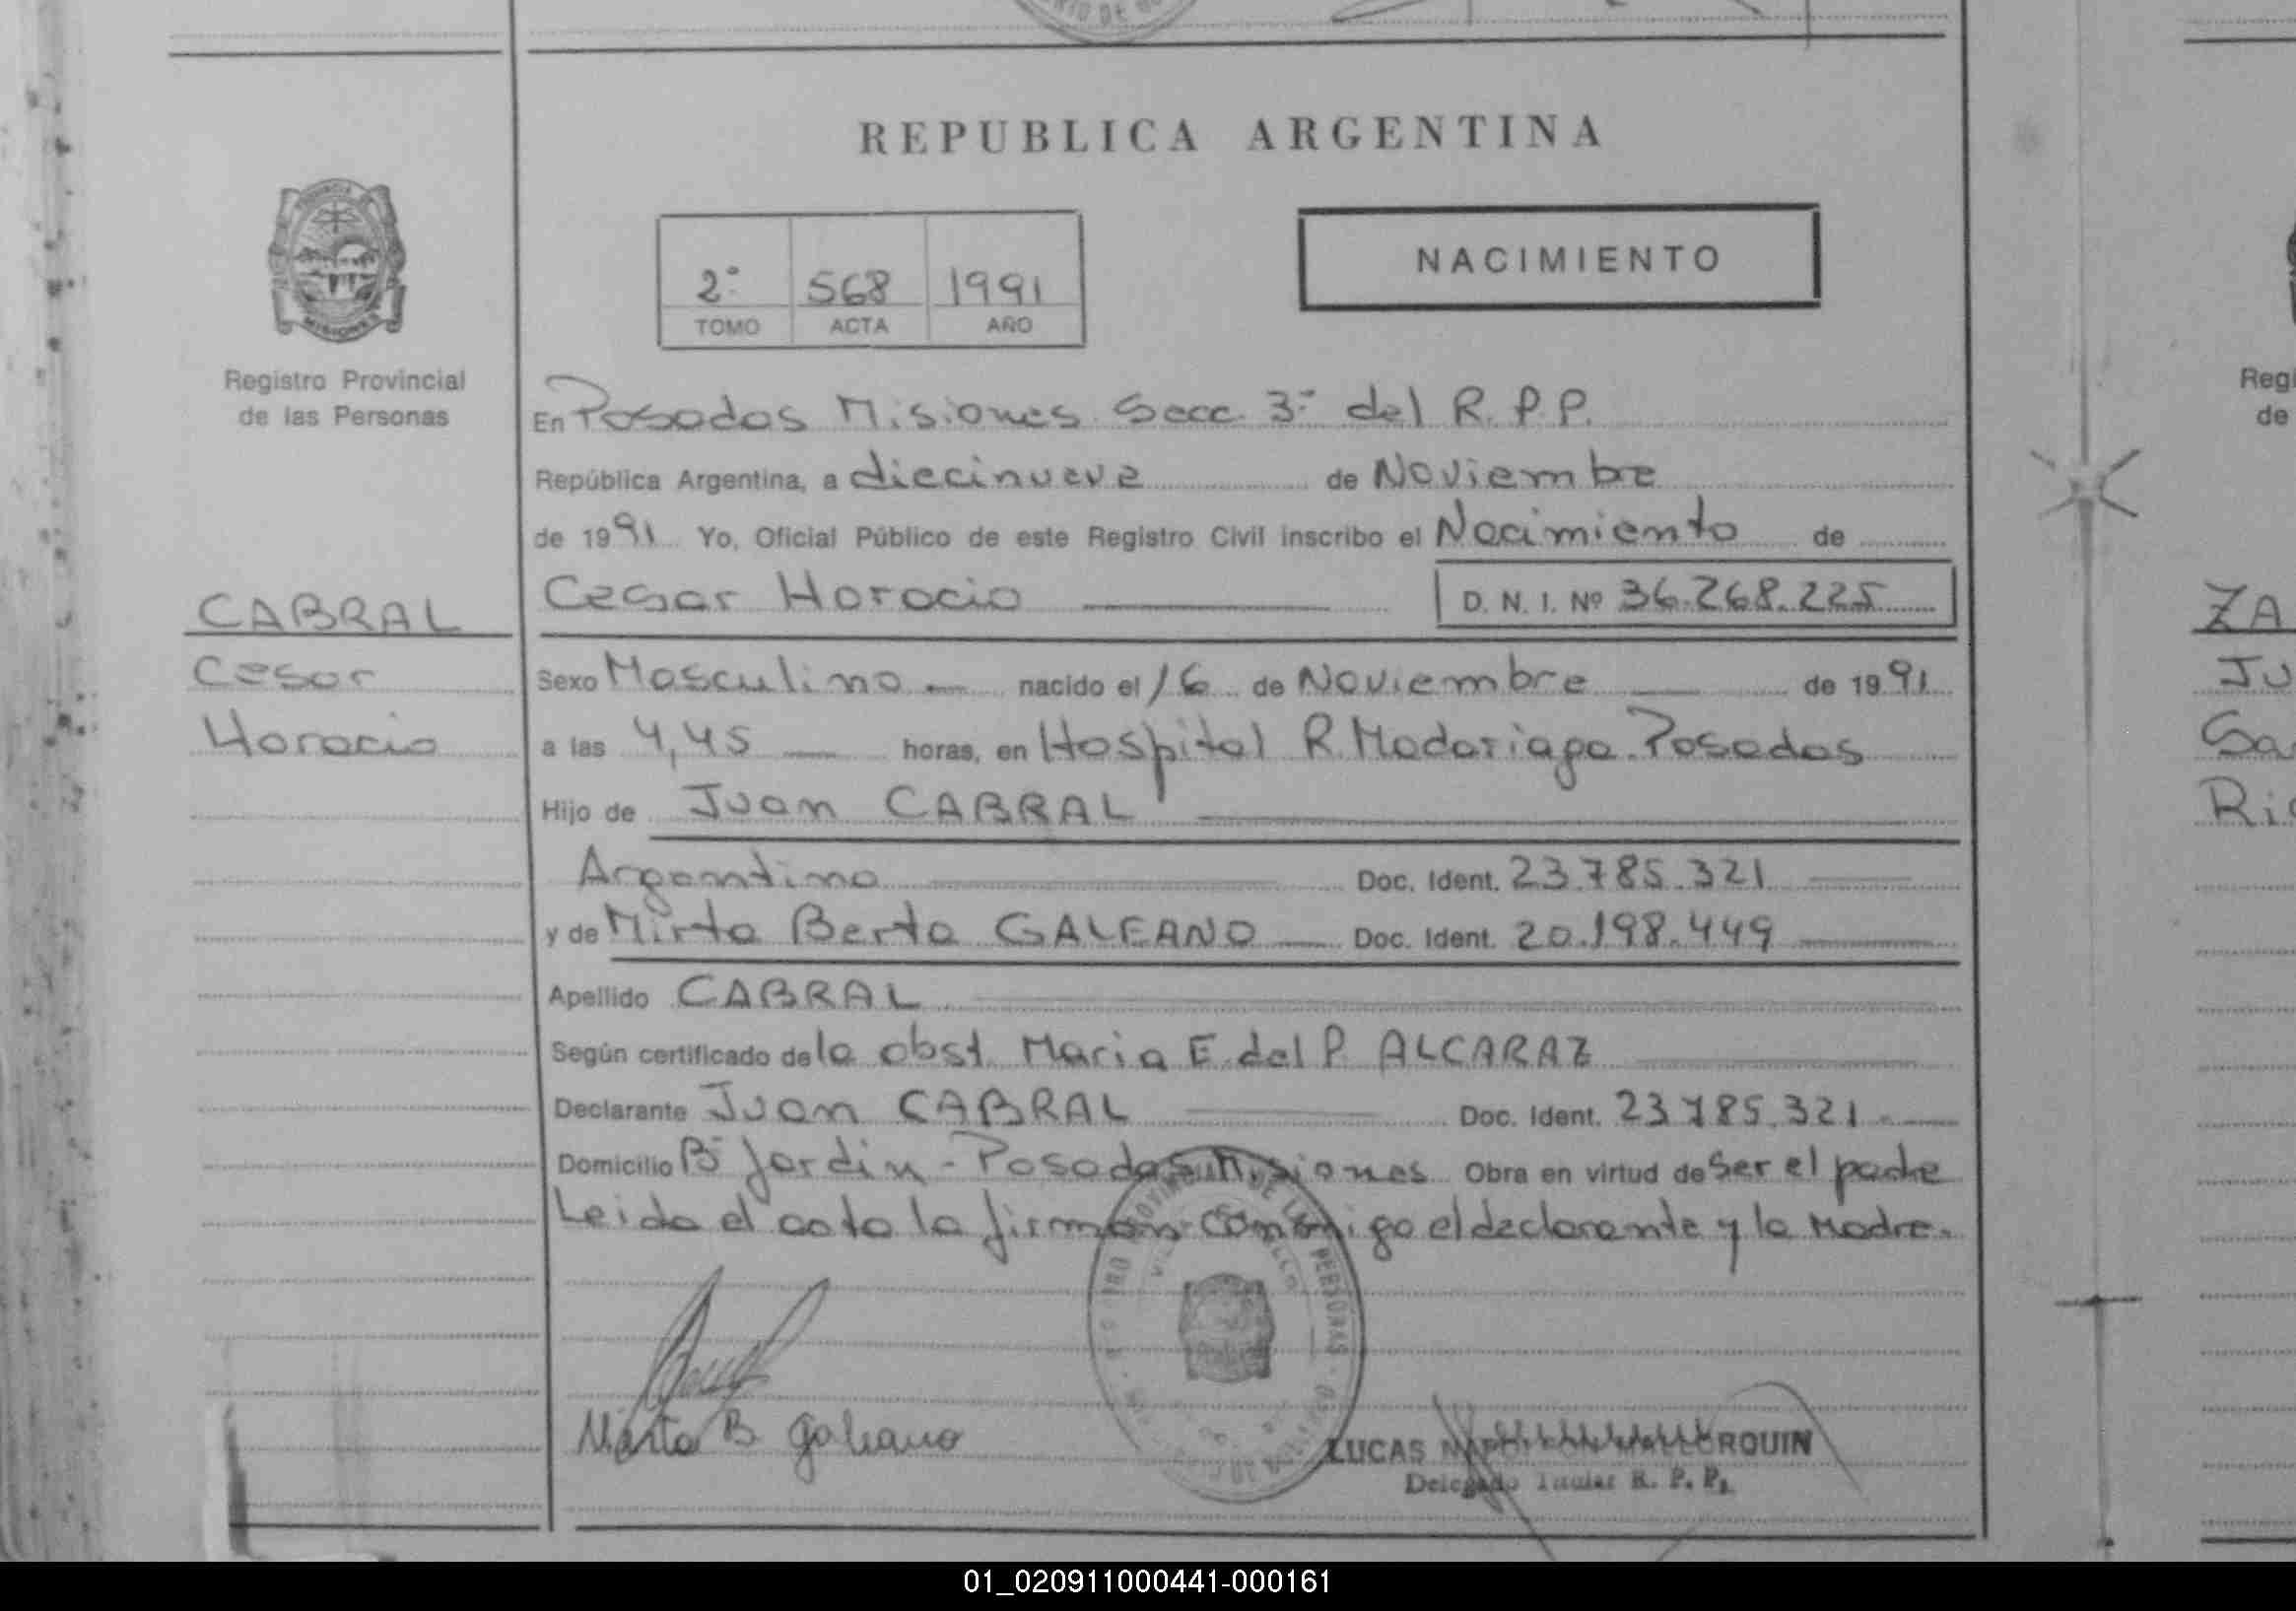 REPUBLICA ARGENTINA
NACIMIENTO
2º 568 1991
TOMO ACTA AÑO
MISIONES
Registro Provincial
de las Personas
CABRAL
Cesar
Horacio
En Posadas Misiones Secc. 3º del R.P.P.
República Argentina, a diecinueve de Noviembre
de 1991 Yo, Oficial Público de este Registro Civil inscribo el Nacimiento de
Cesar Horacio D. N. I. Nº 36.268.225
Sexo Masculino nacido el 16 de Noviembre de 1991
a las 4,45 horas, en Hospital R. Madariaga Posadas
Hijo de Juan CABRAL
Argentino Doc. Ident. 23.785.321
y de Mirta Berta GALEANO Doc. Ident. 20.198.449
Apellido CABRAL
Según certificado de la obst. Maria E. del P. ALCARAZ
Declarante Juan CABRAL Doc. Ident. 23.785.321
Domicilio Bº Jardin - Posadas Misiones Obra en virtud de Ser el padre
Leida el acta la firman conmigo el declarante y la Madre.
Mirta B. Galeano
LUCAS
Delegado Titular R. P. P.
Regi
de
ZA
Ju
Ri
01_020911000441-000161